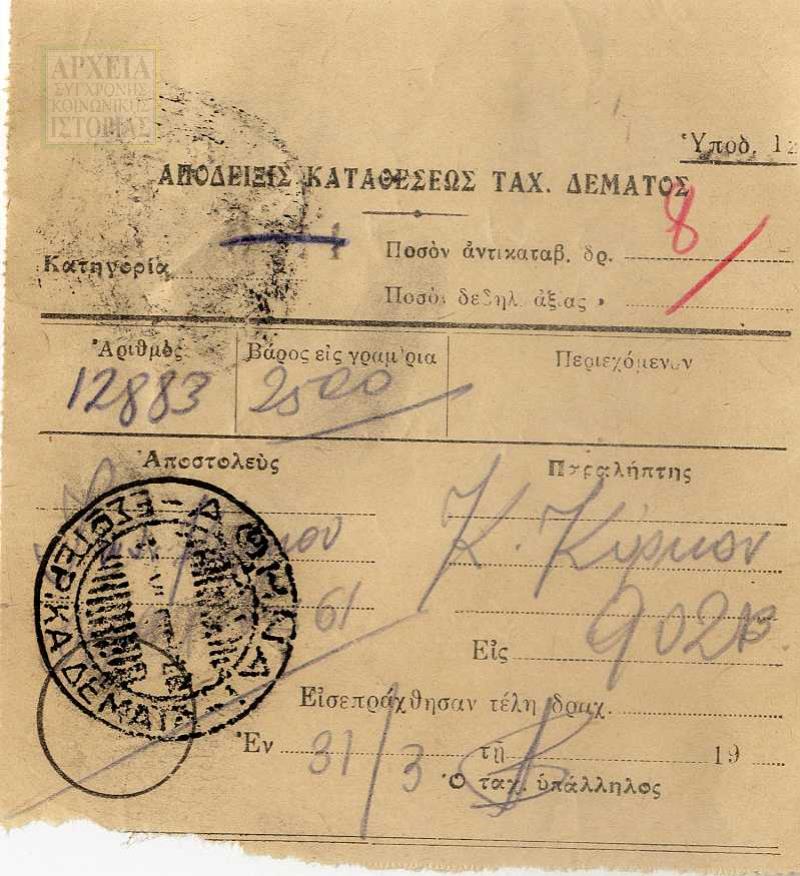 ΑΡΧΕΙΑ
ΣΥΓΧΡΟΝΗΣ
ΚΟΙΝΩΝΙΚΗΣ
ΙΣΤΟΡΙΑΣ
Ὑποδ. 12
ΑΠΟΔΕΙΞΙΣ ΚΑΤΑΘΕΣΕΩΣ ΤΑΧ. ΔΕΜΑΤΟΣ
Κατηγορία
Ποσὸν ἀντικαταβ. δρ. 8
Ποσὸν δεδηλ. ἀξίας »
Ἀριθμὸς Βάρος εἰς γραμμάρια Περιεχόμενον
12883 2500
Ἀποστολεὺς Παραλήπτης
Κ. Κύρκον
61
Εἰς 902
ΑΘΗΝΑΙ ΕΣΩΤΕΡΙΚΑ ΔΕΜΑΤΑ
Εἰσεπράχθησαν τέλη δραχ.
Ἐν 31/3 τῇ 19
Ὁ ταχ. ὑπάλληλος